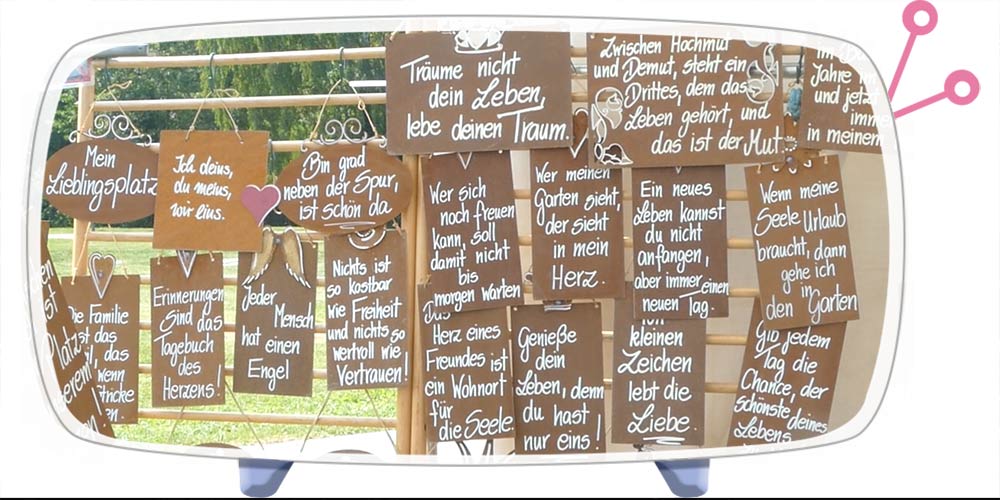 Mein
Lieblingsplatz
Ich deins,
du meins,
wir eins.
Bin grad
neben der Spur,
ist schön da
Träume nicht
dein Leben,
lebe deinen Traum.
Zwischen Hochmut
und Demut, steht ein
Drittes, dem das
Leben gehört, und
das ist der Mut.
Jahre
und jetzt
in meinem
Wer sich
noch freuen
kann, soll
damit nicht
bis
morgen warten
Wer meinen
Garten sieht,
der sieht
in mein
Herz.
Ein neues
Leben kannst
du nicht
anfangen,
aber immer einen
neuen Tag.
Wenn meine
Seele Urlaub
braucht, dann
gehe ich
in
den Garten
Familie
ist das
das
wenn
Erinnerungen
Sind das
Tagebuch
des
Herzens!
Jeder
Mensch
hat einen
Engel
Nichts ist
so kostbar
wie Freiheit
und nichts so
wertvoll wie
Vertrauen!
Das
Herz eines
Freundes ist
ein Wohnort
für
die Seele.
Genieße
dein
Leben, denn
du hast
nur eins!
kleinen
Zeichen
lebt die
Liebe.
Gib jedem
Tag die
Chance, der
schönste deines
Lebens